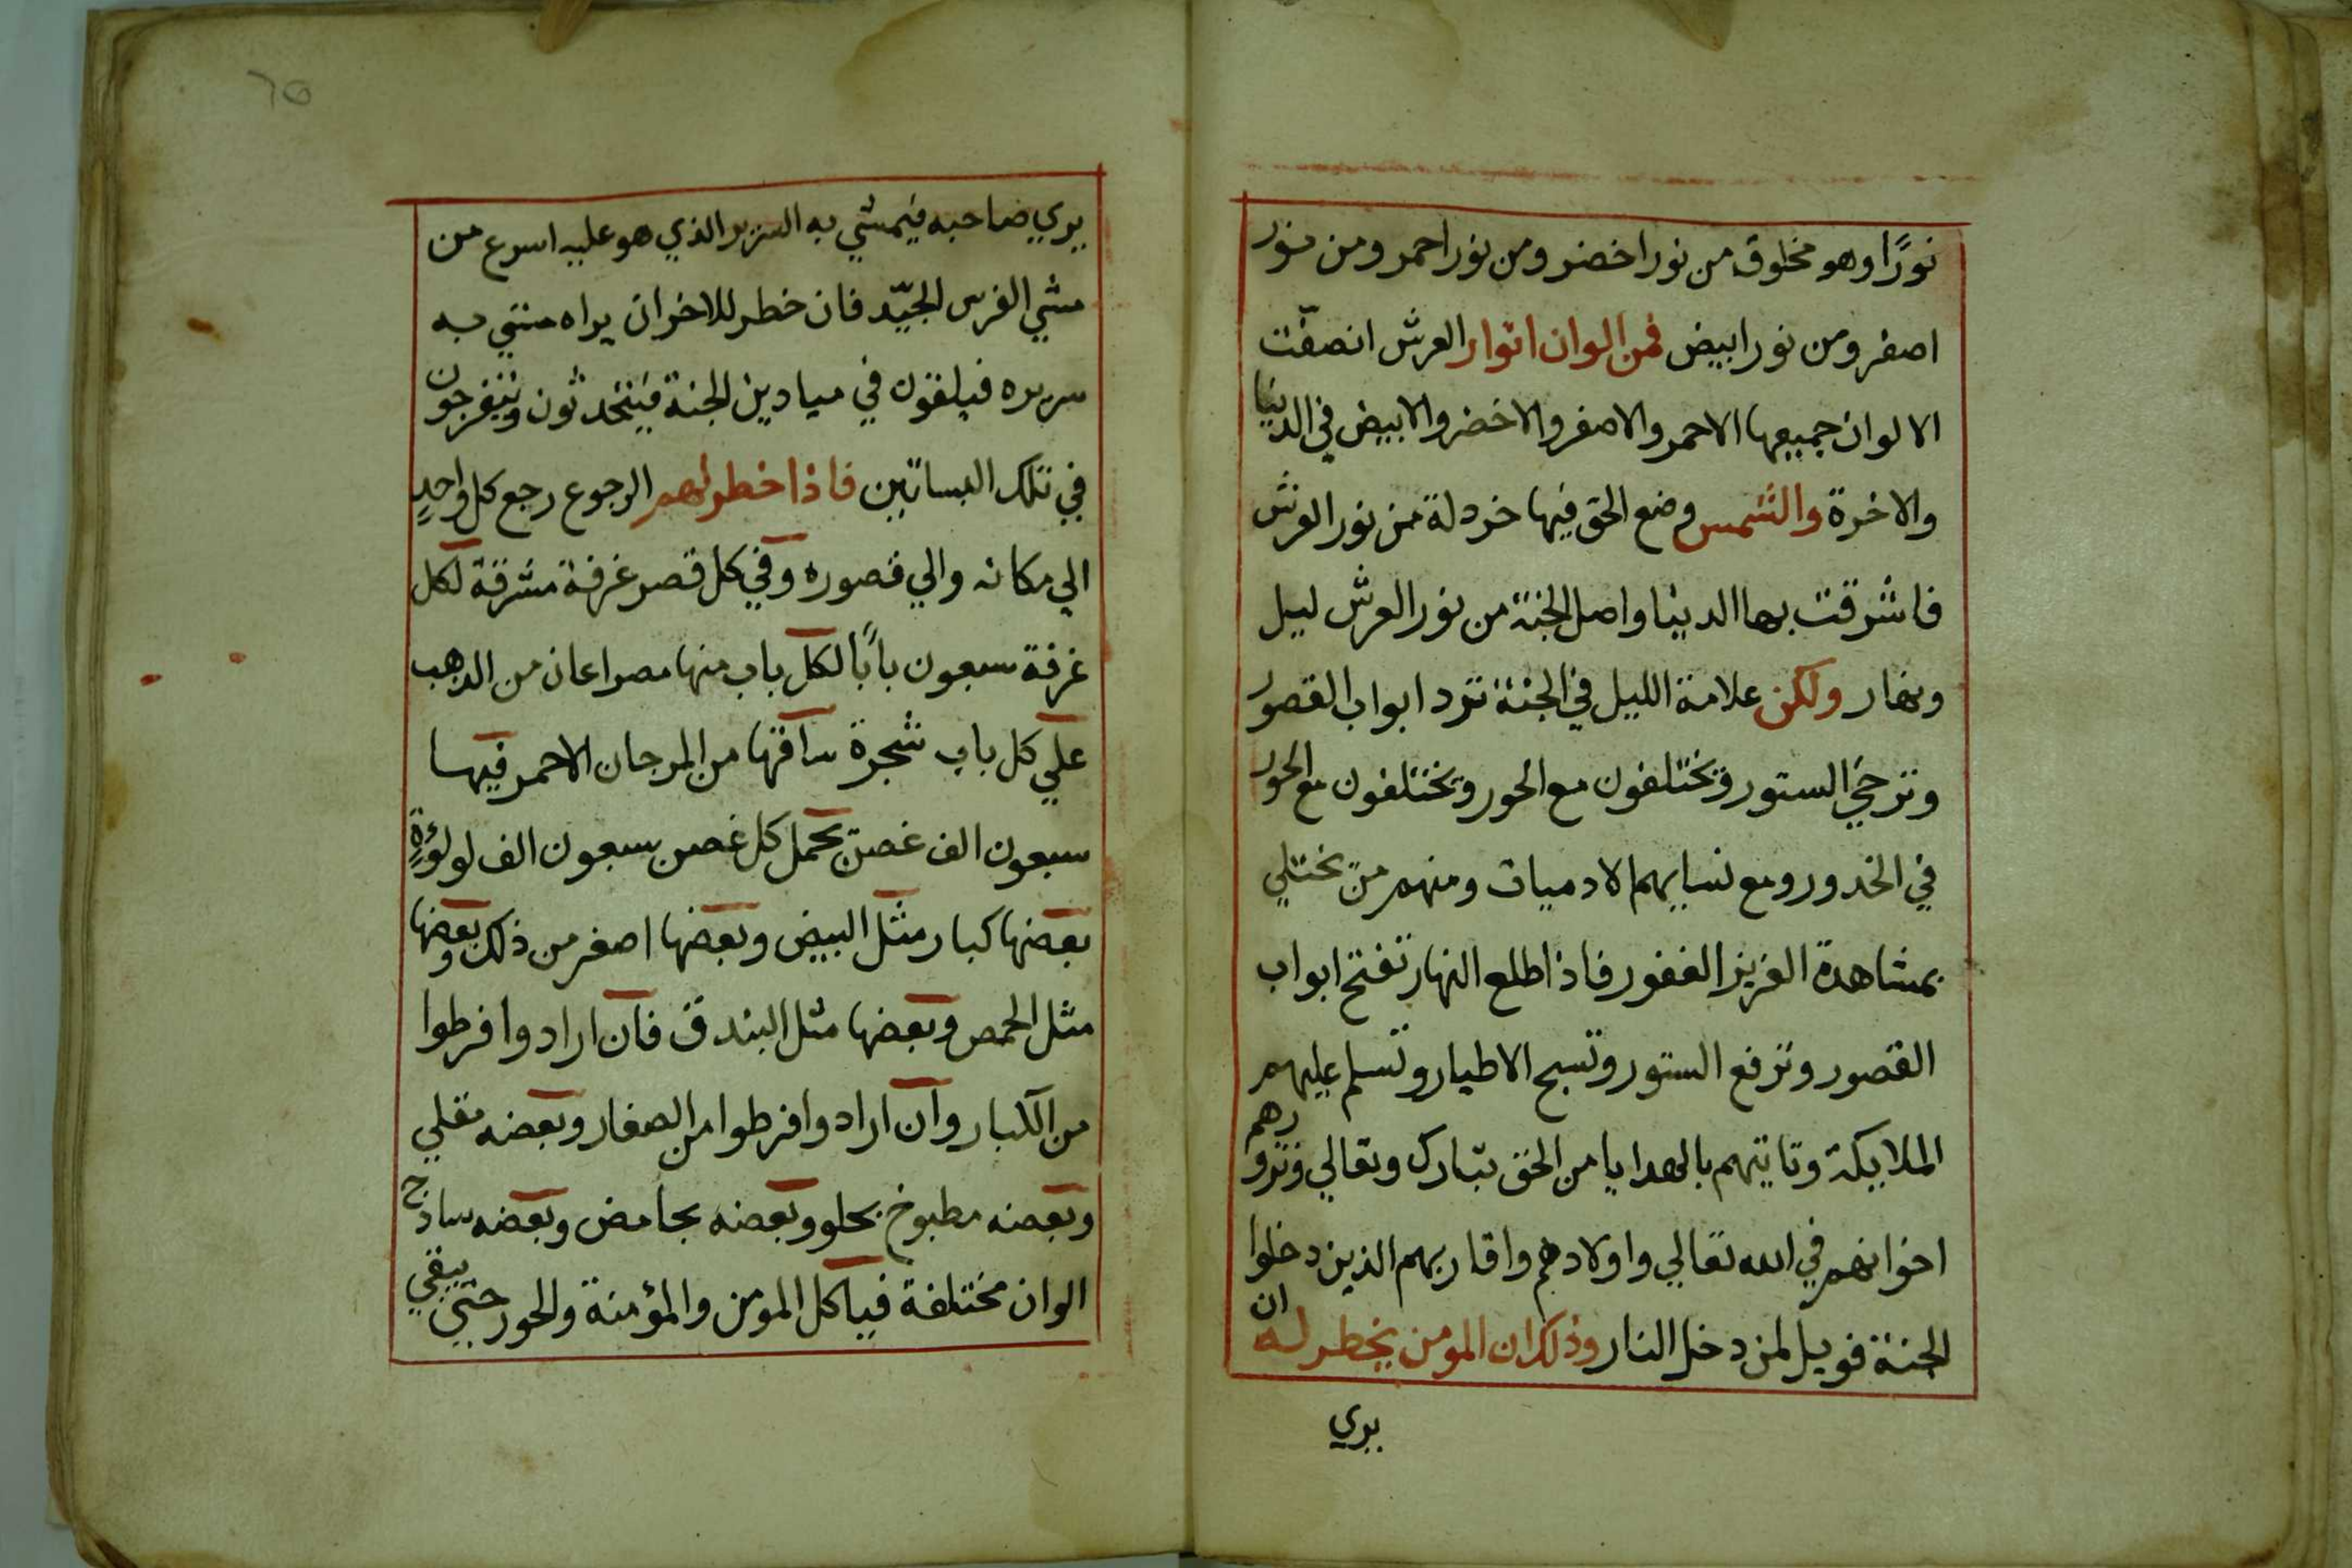 نورًا وهو مخلوق من نور اخضر ومن نور احمر ومن نور
اصفر ومن نور ابيض فمن الوان انوار العرش انصفّت
الالوان جميعها الاحمر والاصفر والاخضر والابيض في الدنيا
والاخرة والشمس وضع الحق فيها خردلة من نور العرش
فاشرقت بها الدنيا واصل الجنة من نور العرش ليل
ونهار ولكن علامة الليل في الجنة ترد ابواب القصور
وترخي الستور ويختلفون مع الحور ويختلفون مع الحور
في الخدور ومع نسايهم الادميات ومنهم من يختلي
بمشاهدة العزيز الغفور فاذا طلع النهار تفتح ابواب
القصور وترفع الستور وتسبح الاطيار وتسلم عليهم
الملايكة وتاتيهم بالهدايا من الحق تبارك وتعالي وتزورهم
اخوانهم في الله تعالي واولادهم واقاربهم الذين دخلوا
الجنة فويل لمن دخل النار وذلك ان المومن يخطر له ان
يري
٦٥
يري صاحبه فيمشي به السرير الذي هو عليه اسرع من
مشي الفرس الجيّد فان خطر للاخر ان يراه مشي به
سريره فيلقون في ميادين الجنة فيتحدثون ويتفرجون
في تلك البساتين فاذا خطر لهم الرجوع رجع كل واحدٍ
الي مكانه والي قصوره وفي كل قصر غرفة مشرقة لكل
غرفة سبعون بابًا لكل باب منها مصراعان من الذهب
علي كل باب شجرة ساقها من المرجان الاحمر فيها
سبعون الف غصن يحمل كل غصن سبعون الف لولوءةٍ
بعضها كبار مثل البيض وبعضها اصغر من ذلك وبعضها
مثل الحمص وبعضها مثل البندق فان ارادوا فرطوا
من الكبار وان ارادوا فرطوا من الصغار وبعضه مقلي
وبعضه مطبوخ بحلو وبعضه بحامض وبعضه ساذج
الوان مختلفة فياكل المومن والمؤمنة والحور حتي يبقي